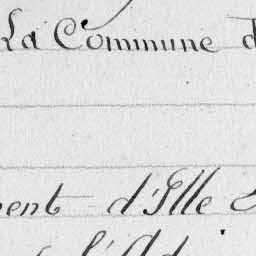 La Commune d
ent d'Ille
l'Ad